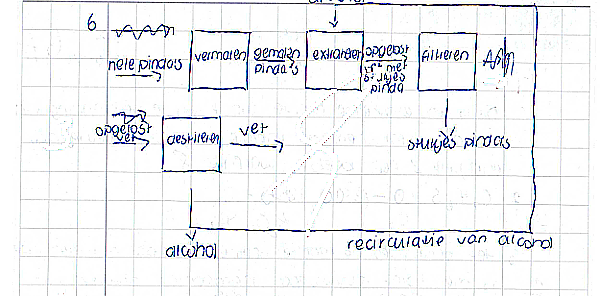 6
hele pindas
vermalen
gemalen
pinda's
extraheren
opgelost
vet met
stukjes
pinda
filtreren
stukjes pindas
opgelost
vet
destilleren
vet
alcohol
recirculatie van alcohol